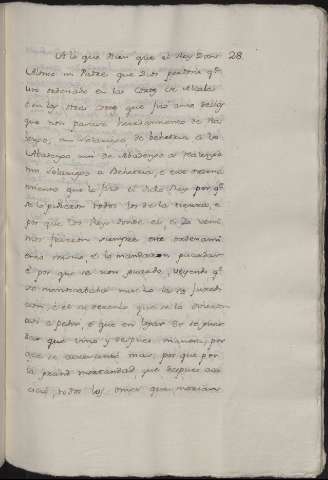 28.
A lo que dicen que el Rey Don
Alonso mi Padre que Dios perdone q.e
uvo ordenado en las Cortes de Alcala
con los Reies onde que fue ante desto
que non pasara heredamiento de Rea
lengo, nin solariego de behetria a lo
Abadengo nin de Abadengo a Realengo
nin solariego a Behetria, e este ordena
miento que lo fizo el dicho Rey por q.e
se lo pidieron todos los de la tierra, e
por que los Reys donde el, e Yo veni
mos ficieron siempre este ordenami
ento mismo, e lo mandaron guardar
e por que se non guardó, veyendo q.e
se menoscababa mucho la su juredi
cion, e el su derecho que se lo ovieron
asi a pedir, e que en lugar de se guar
dar que vino y despues manera, por
que se acrecentó mas, por que por
la grand mortandad que despues aca
eció, todos los omes que morian